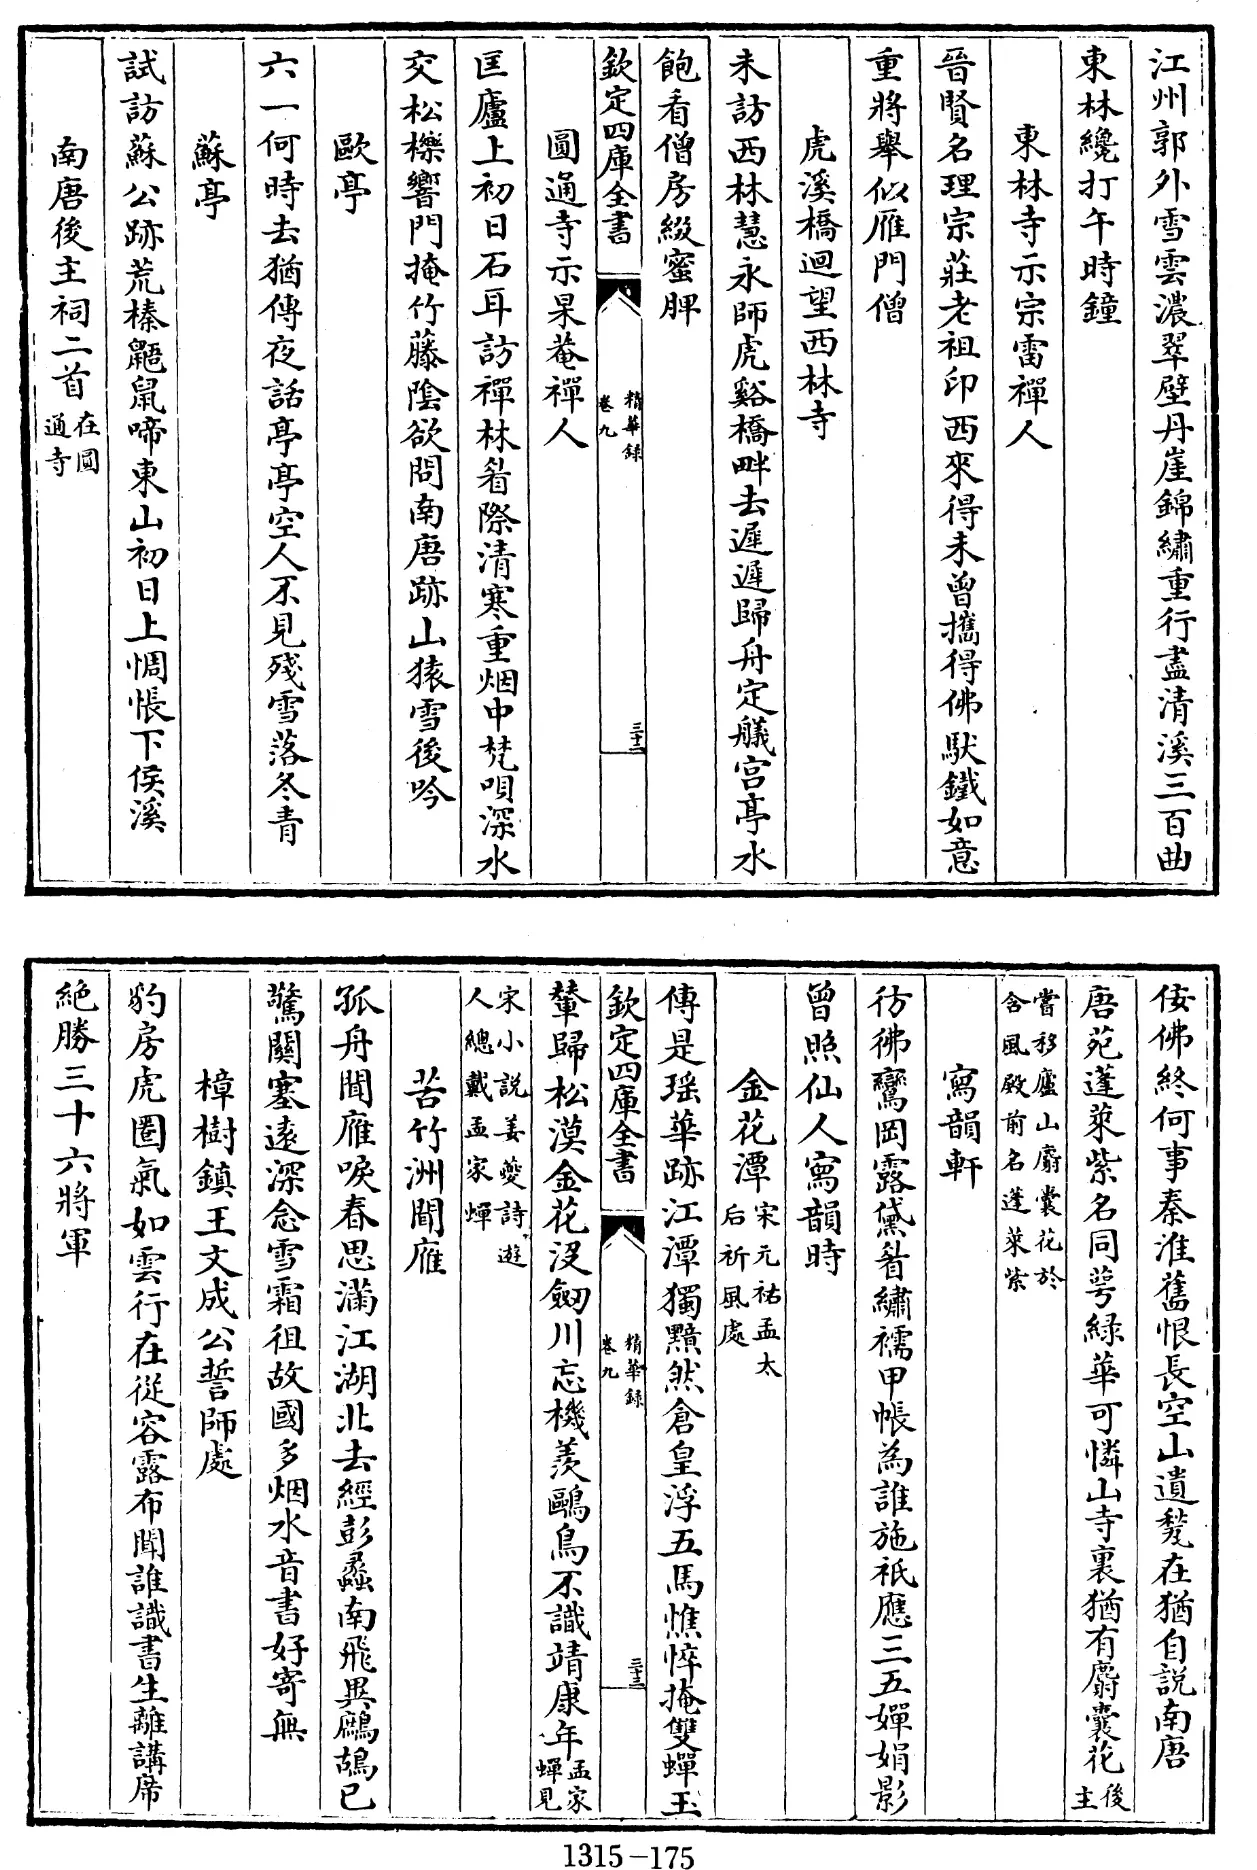 江州郭外雪雲濃翠壁丹崖錦繡重行盡清溪三百曲
東林纔打午時鐘
東林寺示宗雷禪人
晉賢名理宗莊老祖印西來得未曾攜得佛馱鐵如意
重將舉似雁門僧
虎溪橋迴望西林寺
未訪西林慧永師虎谿橋畔去遲遲歸舟定艤宮亭水
飽看僧房綴蜜脾
欽定四庫全書
精華錄
卷九
三十二
圓通寺示杲菴禪人
匡廬上初日石耳訪禪林看際清寒重烟中梵唄深水
交松櫟響門掩竹藤陰欲問南唐跡山猿雪後吟
歐亭
六一何時去猶傳夜話亭亭空人不見殘雪落冬青
蘇亭
試訪蘇公跡荒榛鼯鼠啼東山初日上惆悵下侯溪
南唐後主祠二首在圓
通寺
佞佛終何事秦淮舊恨長空山遺髠在猶自説南唐
唐苑蓬萊紫名同萼緑華可憐山寺裏猶有麝囊花後
主
嘗移廬山麝囊花於
含風殿前名蓬萊紫
寫韻軒
彷彿鸞岡露黛看繡襦甲帳為誰施祇應三五嬋娟影
曾照仙人寫韻時
金花潭宋元祐孟太
后祈風處
傳是瑶華跡江潭獨黯然倉皇浮五馬憔悴掩雙蟬玉
欽定四庫全書
精華錄
卷九
三十三
輦歸松漠金花沒劒川忘機羨鷗鳥不識靖康年孟家
蟬見
宋小説姜夔詩遊
人總戴孟家蟬
苦竹洲聞雁
孤舟聞雁唳春思滿江湖北去經彭蠡南飛異鷓鴣已
驚關塞遠深念雪霜徂故國多烟水音書好寄無
樟樹鎮王文成公誓師處
豹房虎圈氣如雲行在從容露布聞誰識書生離講席
絶勝三十六將軍
1315-175